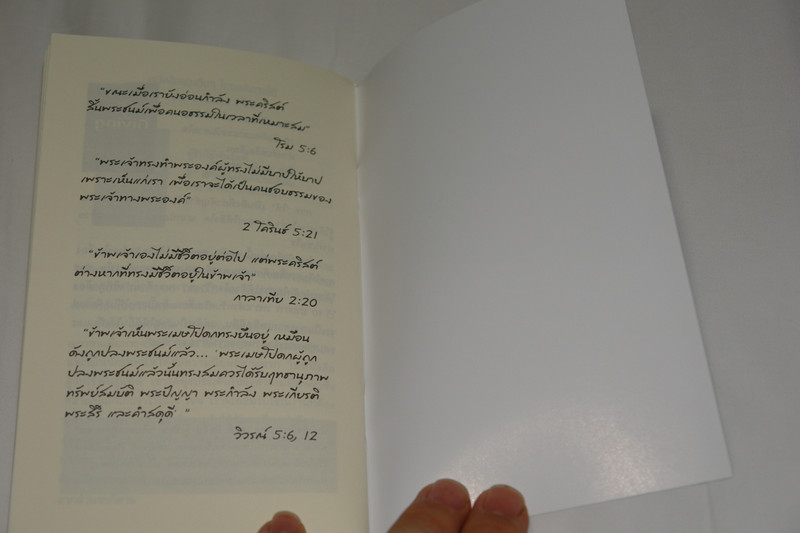 "ขณะเมื่อเรายังอ่อนกำลัง พระคริสต์
สิ้นพระชนม์เพื่อคนอธรรมในเวลาที่เหมาะสม"
โรม 5:6
"พระเจ้าทรงทำพระองค์ผู้ทรงไม่มีบาปให้บาป
เพราะเห็นแก่เรา เพื่อเราจะได้เป็นคนชอบธรรมของ
พระเจ้าทางพระองค์"
2 โครินธ์ 5:21
"ข้าพเจ้าเองไม่มีชีวิตอยู่ต่อไป แต่พระคริสต์
ต่างหากที่ทรงมีชีวิตอยู่ในข้าพเจ้า"
กาลาเทีย 2:20
"ข้าพเจ้าเห็นพระเมษโปดกทรงยืนอยู่ เหมือน
ดังถูกปลงพระชนม์แล้ว... 'พระเมษโปดกผู้ถูก
ปลงพระชนม์แล้วนั้นทรงสมควรได้รับฤทธานุภาพ
ทรัพย์สมบัติ พระปัญญา พระกำลัง พระเกียรติ
พระสิริ และคำสดุดี' "
วิวรณ์ 5:6, 12